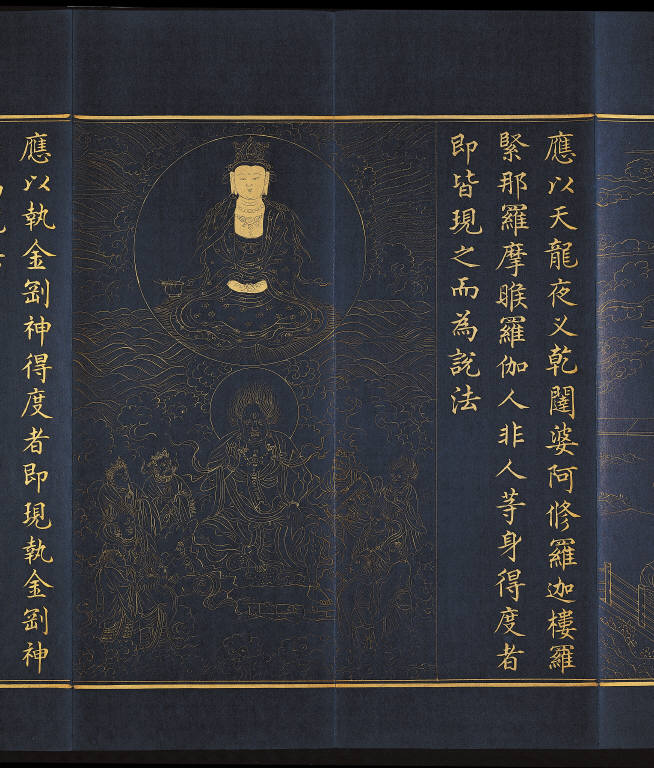 應以天龍夜叉乾闥婆阿修羅迦樓羅
緊那羅摩睺羅伽人非人䓁身得度者
即皆現之而為說法
應以執金剛神得度者即現執金剛神